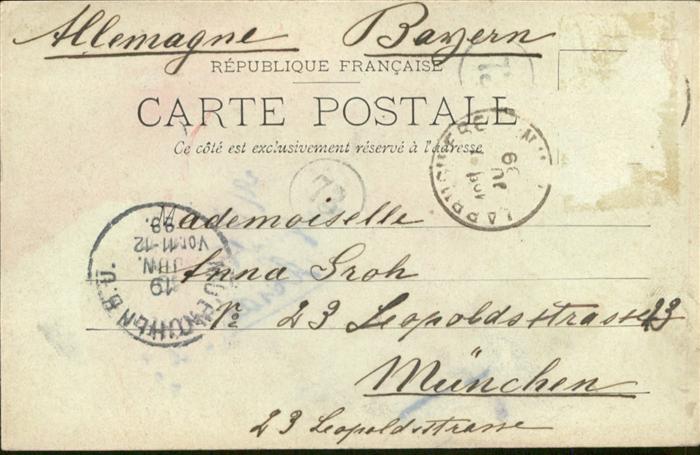 Allemagne Bayern
RÉPUBLIQUE FRANÇAISE
CARTE POSTALE
Ce côté est exclusivement réservé à l'adresse
73
Mademoiselle
Anna Groh
No 23 Leopoldsstrasse 23
München
23 Leopoldsstrasse
MUENCHEN B.Z.
19
JUN.
Vor. 11-12
99